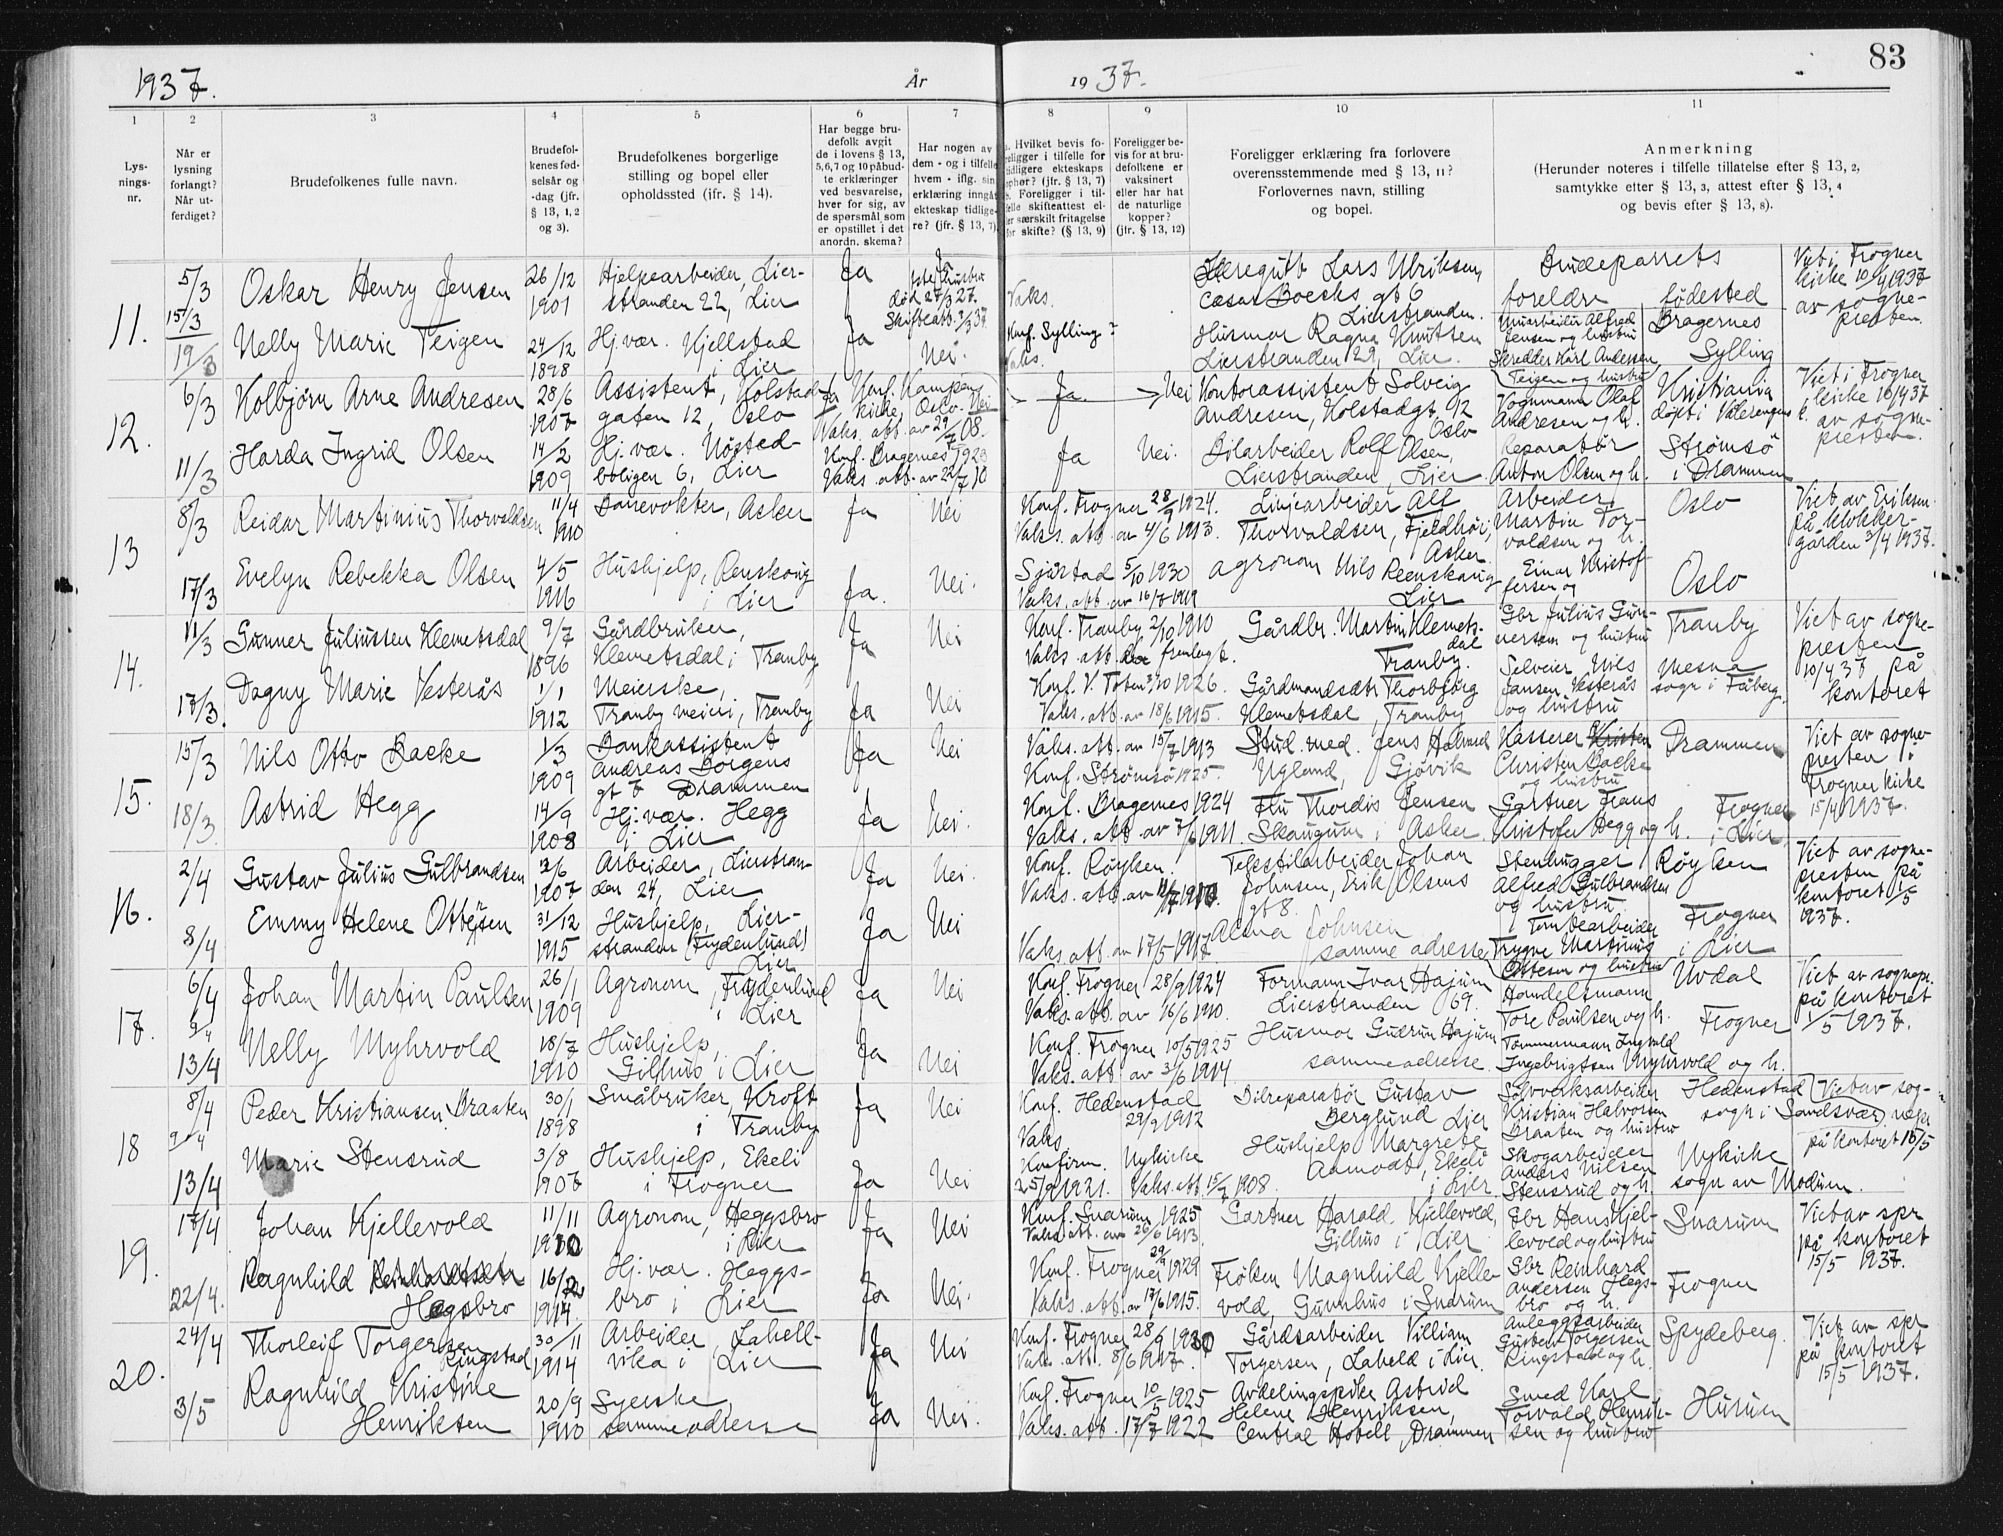 83
1937. År 1937.
1 2 3 4 5 6 7 8 9 10 11
Lys-
nings-
nr.
Når er
lysning
forlangt?
Når ut-
ferdiget?
Brudefolkenes fulle navn.
Brudefol-
kenes fød-
selsår og
-dag (jfr.
§ 13, 1, 2
og 3).
Brudefolkenes borgerlige
stilling og bopel eller
opholdssted (jfr. § 14).
Har begge bru-
defolk avgit
de i lovens § 13,
5,6,7 og 10 påbud-
te erklæringer
ved besvarelse,
hver for sig, av
de spørsmål som
er opstillet i det
anordn. skema?
Har nogen av
dem - og i tilfelle
hvem - iflg. sin
erklæring inngått
ekteskap tidlige-
re? (jfr. § 13, 7).
Hvilket bevis fo-
religger i tilfelle for
tidligere ekteskaps
ophør? (jfr. § 13, 7)
Foreligger i til-
felle skifteattest el-
ler særskilt fritagelse
for skifte? (§ 13, 9)
Foreligger be-
vis for at bru-
defolkene er
vaksinert
eller har hat
de naturlige
kopper?
(jfr. § 13, 12)
Foreligger erklæring fra forlovere
overensstemmende med § 13, 11?
Forlovernes navn, stilling
og bopel.
Anmerkning
(Herunder noteres i tilfelle tillatelse efter § 13, 2,
samtykke efter § 13, 3, attest efter § 13, 4
og bevis efter § 13, 8).
11.
5/3
15/3
19/3
Oskar Henry Jensen
26/12
1901
Hjelpearbeider, Lier-
stranden 22, Lier
Ja
Ja
død 27/3 27.
Skifteatt. 2/3 37
Vaks.
Læregutt Lars Ulriksen,
Cæsar Boecks gt 6
Lierstranden.
Brudeparrets
foreldre fødested
Viet i Frogner
kirke 10/4 1937
av sogne-
presten.
Nelly Marie Teigen
24/12
1898
Hj.vær. Kjellstad
i Lier
Ja
Nei.
Konf. Sylling?
Vaks.
Husmor Ragna Knutsen
Lierstranden 29, Lier.
Murarbeider Alfred
Jensen og hustru
Skredder Karl Andersen
Teigen og hustru
Bragernes
Sylling
12.
6/3
Kolbjørn Arne Andresen
28/6
1907
Assistent, Kolstad-
gaten 12, Oslo
Ja Konf. Kampens
kirke, Oslo. Nei
Vaks. att. av 29/7 08.
Ja
Nei
Kontorassistent Solveig
Andresen, Kolstadgt. 12
Oslo
Vognmann Olaf
Andresen og h.
Kristiania
døpt i Vålerengens k.
Viet i Frogner
kirke 10/4 37
av sogne-
presten.
11/3
Harda Ingrid Olsen
14/2
1909
Hj.vær. Nøsted-
boligen 6, Lier
Konf. Bragernes 1923
Vaks. att. av 22/7 10
Ja
Nei.
Bilarbeider Rolf Olsen,
Lierstranden, Lier
Reparatør
Anton Olsen og h.
Strømsø
i Drammen
13
8/3
Reidar Martinius Thorvaldsen
11/4
1910
Banevokter, Asker
Ja
Nei
Konf. Frogner 28/9 1924.
Vaks. att. av 4/6 1913.
Linjearbeider Alf
Thorvaldsen, Fjeldhøi,
Asker
Arbeider
Martin Tor-
valdsen og h.
Oslo
Viet av Eriksen
på klokker-
gården 3/4 1937.
17/3
Evelyn Rebekka Olsen
4/5
1916
Hushjelp, Renskoug
i Lier
Ja.
Nei.
Sjåstad 5/10 1930
Vaks. att. av 16/7 1919
Agronom Nils Reenskaug
Lier
Einar Kristof-
fersen og
Oslo
14.
11/3
Gunner Juliussen Klemetsdal
9/7
1896
Gårdbruker,
Klemetsdal i Tranby
Ja
Nei
Konf. Tranby 2/10 1910
Vaks. att. fremlagt.
Gårdbr. Martin Klemets-
dal
Tranby.
Gbr Julius Gun-
nersen og hustru
Tranby
Viet av sogne-
presten
10/4 37 på
kontoret
17/3.
Dagny Marie Vesterås
1/1
1912
Meierske,
Tranby meieri, Tranby
Ja
Nei
Konf. V. Toten 3/10 1926.
Vaks. att. av 18/6 1915.
Gårdmandsdtr Thorbjørg
Klemetsdal, Tranby
Selveier Nils
Jansen Vesterås
og hustru
Mesna
sogn i Fåberg.
15.
15/3
Nils Otto Backe
1/3
1909
Bankassistent
Andreas Borgens
gt 6 Drammen
Ja
Nei
Vaks. att. av 15/7 1913
Konf. Strømsø 1925.
Stud. med. Jens Halvard
Ugland, Gjøvik
Kasserer Kristen
Christen Backe
og hustru
Drammen
Viet av sogne-
presten i
Frogner kirke
15/4 1937.
18/3.
Astrid Hegg
14/9
1908
Hj.vær. Hegg
i Lier
Ja
Nei.
Konf. Bragernes 1924
Vaks. att. av 7/6 1911
Fru Thordis Jensen
Skaugum i Asker
Gartner Frans
Kristofer Hegg og h.
Frogner
i Lier
16.
2/4
Gustav Julius Gulbrandsen
3/6
1907
Arbeider, Lierstran-
den 24, Lier
Ja
Nei.
Konf. Røyken
Vaks. att. av 11/7 1910.
Tekstilarbeider Johan
Johnsen, Erik Olsens
gt 8.
Stenhugger
Alfred Gulbrandsen
og hustru
Røyken
Viet av sogne-
presten på
kontoret 1/5
1937.
8/4
Emmy Helene Ottesen
31/12
1915
Hushjelp, Lier-
stranden (Frydenlund)
Lier
Ja
Nei
Vaks. att. av 17/5 1917
Alma Johnsen
samme adresse
Tomtearbeider
Trygve Martinus
Ottesen og hustru
Frogner
i Lier
17.
6/4
9/4
Johan Martin Paulsen
26/1
1909
Agronom, Frydenlund
i Lier
Ja
Nei
Konf. Frogner 28/9 1924
Vaks. att. av 16/6 1910.
Formann Ivar Hajum
Lierstranden 69.
Handelsmann
Tore Paulsen og h.
Uvdal
Viet av sognepr.
på kontoret
1/5 1937.
13/4
Nelly Myhrvold
18/7
1910
Hushjelp,
Gilhus i Lier
Ja
Nei
Konf. Frogner 10/5 1925
Vaks. att. av 3/6 1914
Husmor Gudrun Hajum
samme adresse
Tømmermann Ingvald
Ingebrigtsen Myhrvold og h.
Frogner
18
8/4
9/4
Peder Kristiansen Braaten
30/1
1898
Småbruker, Kroft
i Tranby
Ja
Nei
Konf. Hedenstad
29/9 1912
Vaks.
Bilreparatør Gustav
Berglund Lier
Sølvverksarbeider
Kristian Halvorsen
Braaten og hustru
Hedenstad
sogn i Sandsvær
Viet av sog-
nepr
på kontoret 15/5
13/4
Marie Stensrud
3/8
1907
Hushjelp, Ekeli
i Frogner
Ja
Nei
Konfirm. Nykirke
25/9 1921. Vaks. att. 15/2 1908.
Hushjelp Margrete
Aamodt, Ekeli
i Lier
Skogarbeider
Anders Nilsen
Stensrud og h.
Nykirke
sogn av Modum.
19.
17/4
Johan Kjellevold
11/11
1910
Agronom, Heggsbro
i Lier
Ja
Nei
Konf. Snarum 1925
Vaks. att. av 26/6 1913.
Gartner Harald Kjellevold,
Gilhus i Lier
Gbr Hans Kjel-
levold og hustru
Snarum
Viet av spr
på kontoret
15/5 1937.
22/4.
Ragnhild Reinhardtsdtr
Hegsbro
16/12
1914
Hj.vær. Heggs-
bro i Lier
Ja
Nei.
Konf. Frogner 29/9 1929
Vaks. att. av 17/6 1915.
Frøken Magnhild Kjelle-
vold, Gunhus i Snarum
Gbr Reinhard
Andersen Hegs-
bro og h.
Frogner
20.
24/4
Thorleif Torgersen
Ringstad
30/11
1914
Arbeider, Lahell-
vika i Lier
Ja
Nei
Konf. Frogner 28/9 1930
Vaks. att. 8/6 1917.
Gårdsarbeider Villiam
Torgersen, Lahell i Lier.
Anleggsarbeider
Gustav Torgersen
Ringstad og h.
Spydeberg.
Viet av spr
på kontoret
15/5 1937.
3/5
Ragnhild Kristine
Henriksen
20/9
1910
Syerske,
samme adresse
Ja
Nei.
Konf. Frogner 10/5 1925
Vaks. att. 17/7 1922
Avdelingspike Astrid
Helene Henriksen,
Central Hotell, Drammen
Smed Karl
Torvald Henrik-
sen og hustru
Hurum